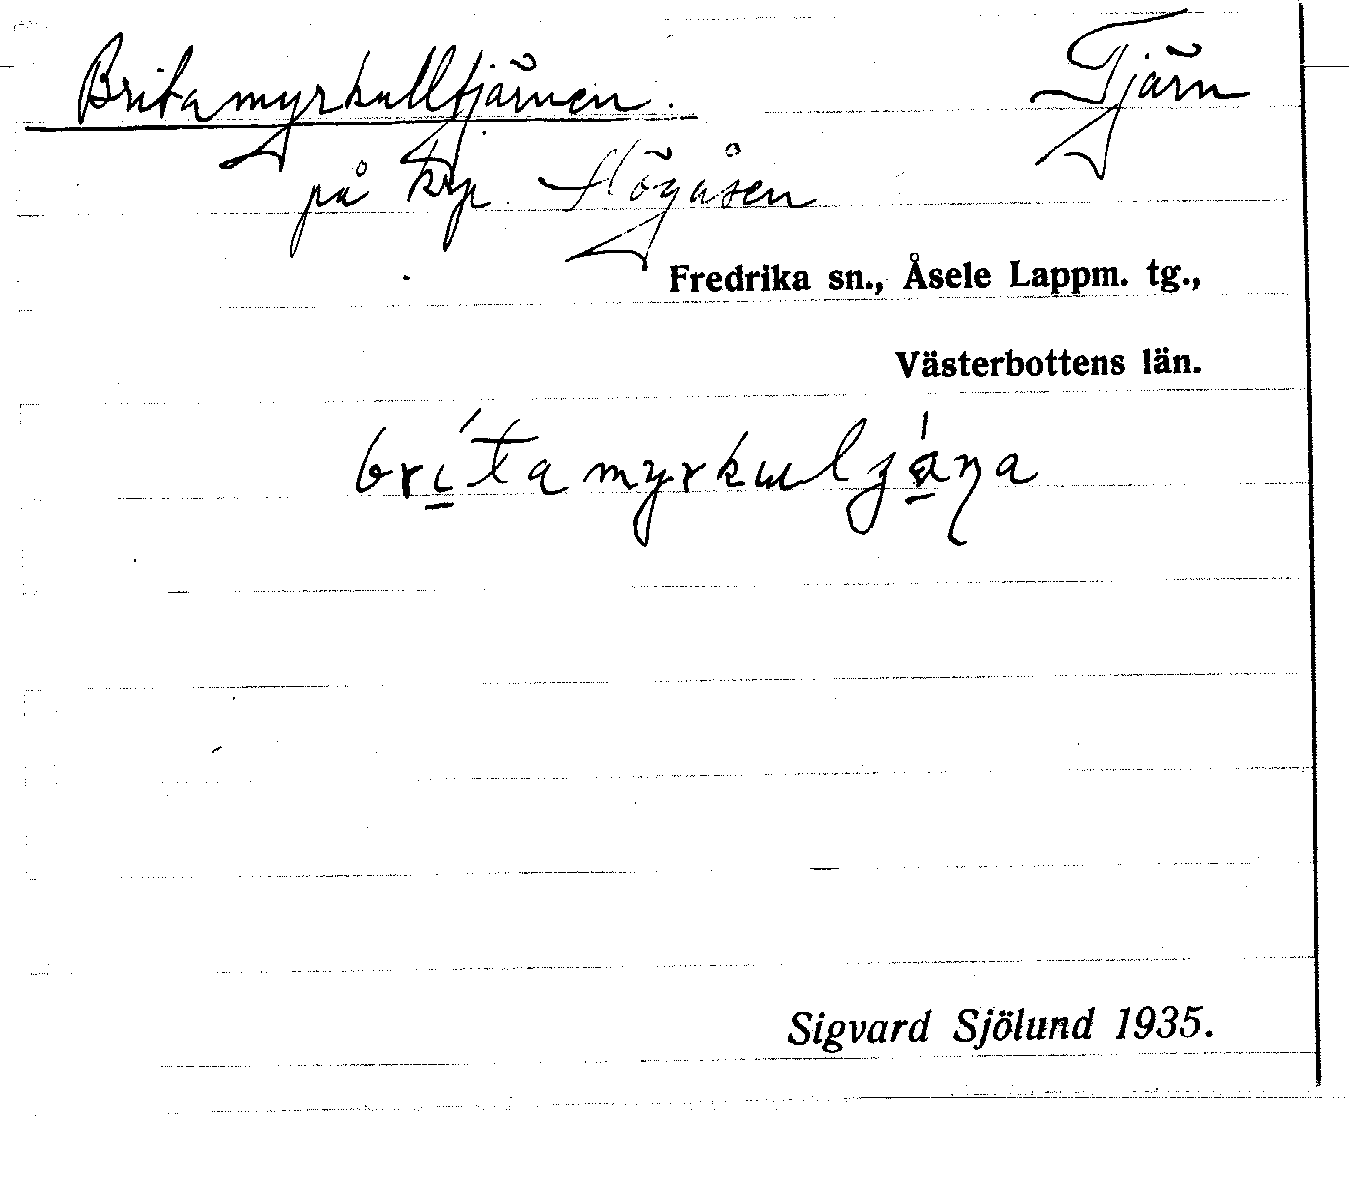 Britamyrkulltjärnen. Tjärn
på krp. Högåsen
Fredrika sn., Åsele Lappm. tg.,
Västerbottens län.
Sigvard Sjölund 1935.